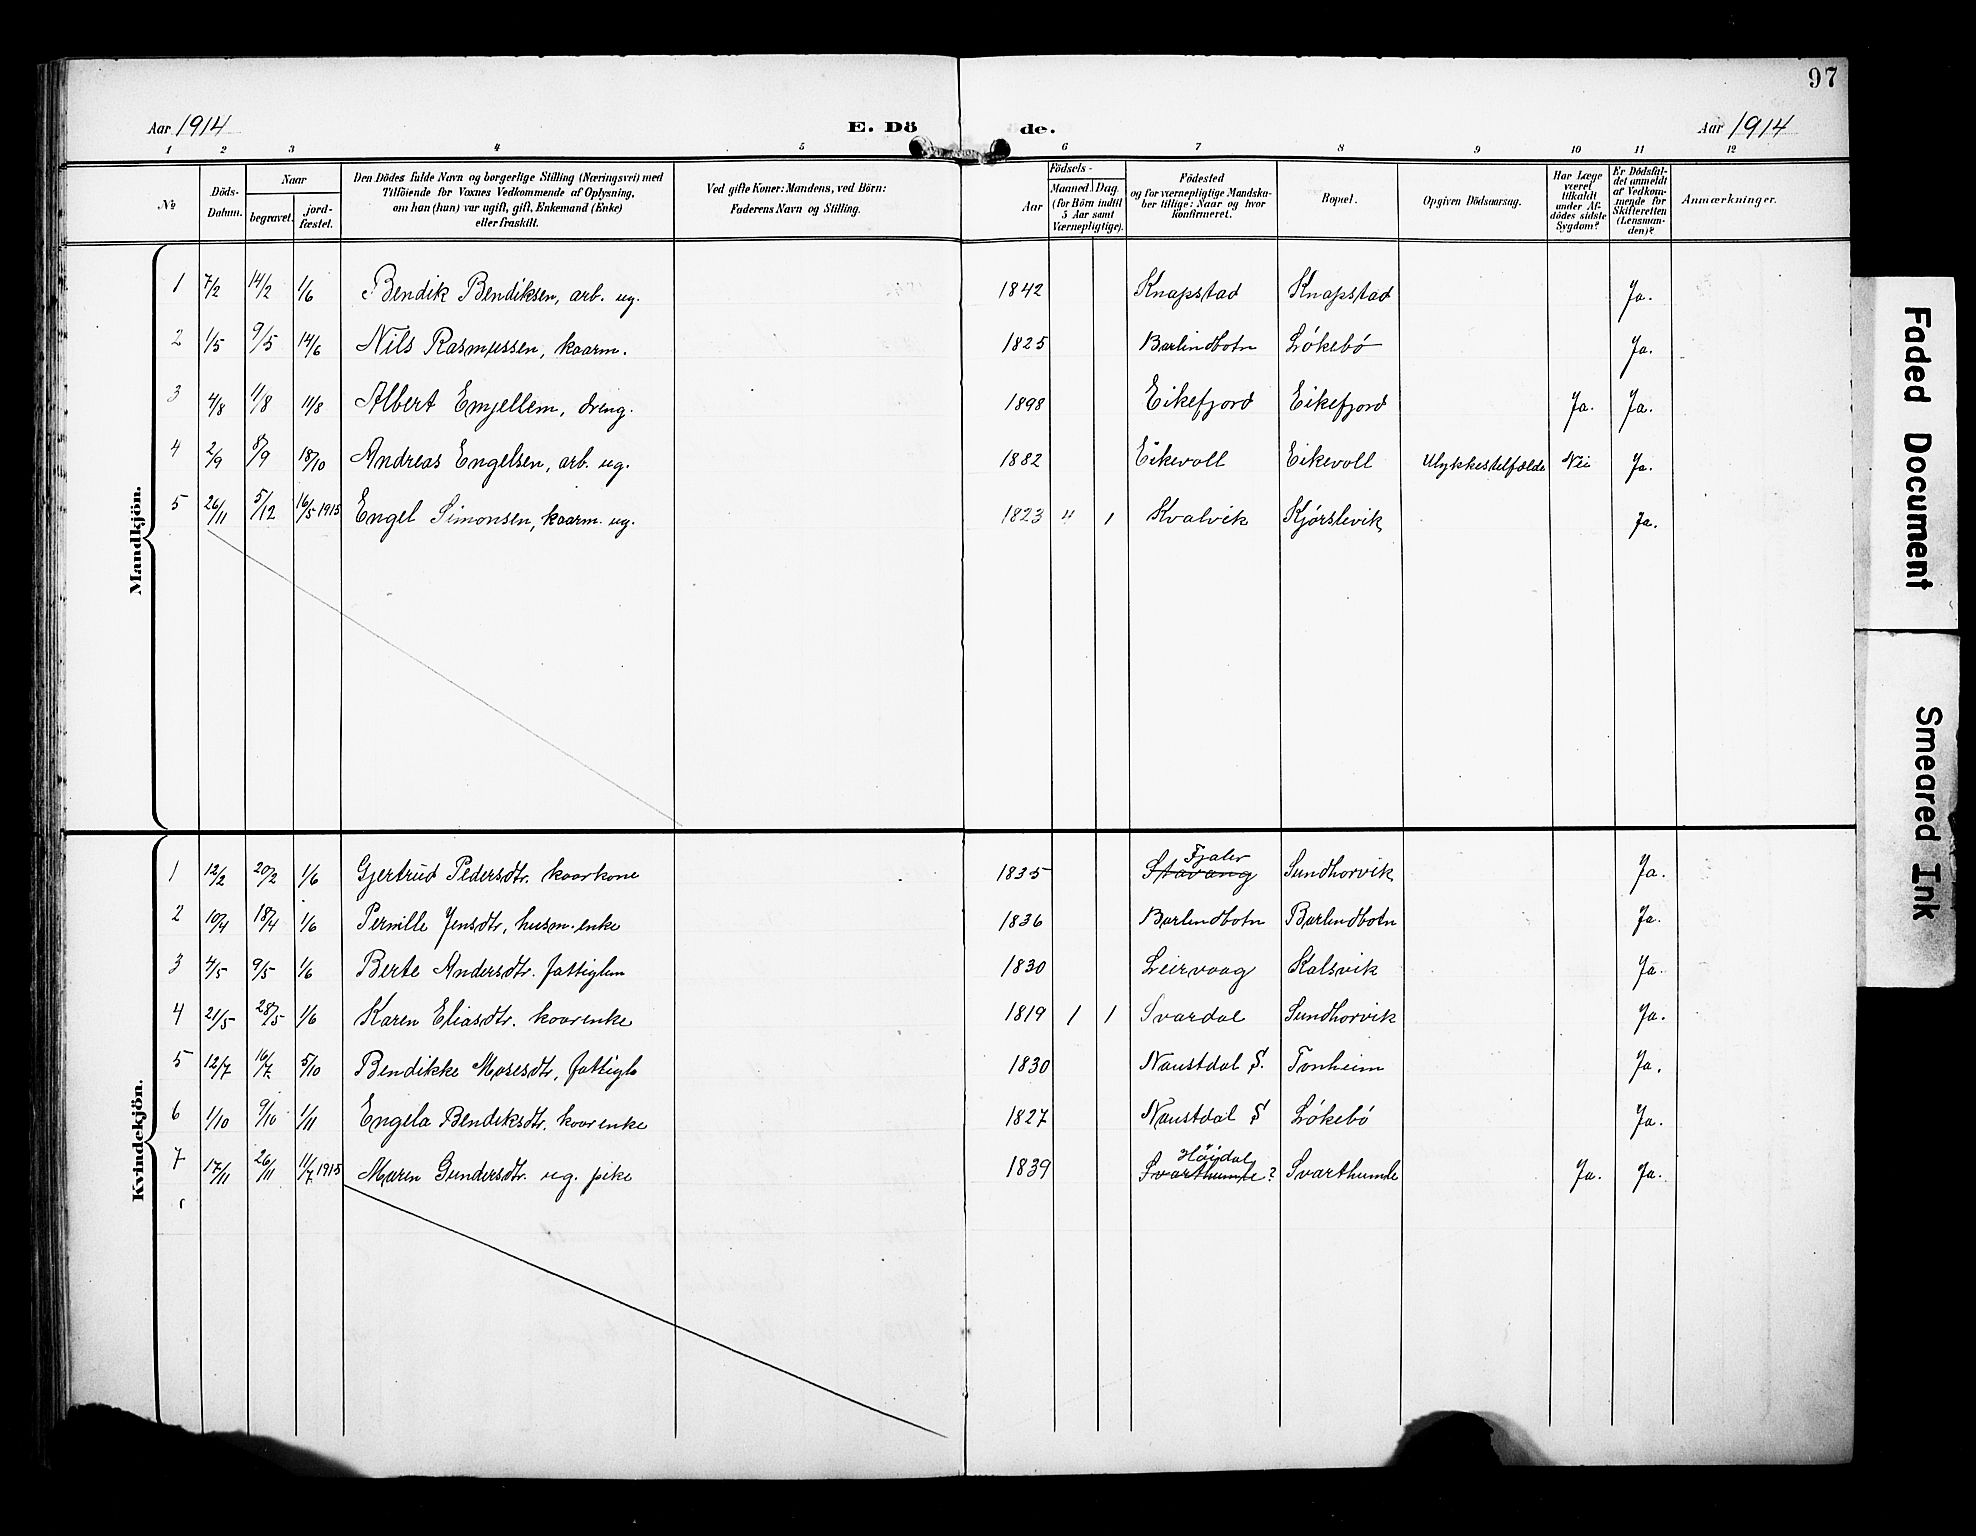 97
Aar 1914 E. Dö de. Aar 1914
1 2 3 4 5 6 7 8 9 10 11 12
№
Döds-Datum.
Naar
begravet.
jord-fæstet.
Den Dödes fulde Navn og borgerlige Stilling (Næringsvei) med
Tilföiende for Voxnes Vedkommende af Oplysning,
om han (hun) var ugift, gift, Enkemand (Enke)
eller fraskilt.
Ved gifte Koner: Mandens, ved Börn:
Faderens Navn og Stilling.
Födsels-
Aar
Maaned Dag
(for Börn indtil
5 Aar samt
Værnepligtige).
Födested
og for værnepligtige Mandska-
ber tillige: Naar og hvor
konfirmeret.
Bopæl.
Opgiven Dödsaarsag.
Har Læge
været
tilkaldt
under Af-
dödes sidste
Sygdom?
Er Dödsfal-
det anmeldt
af Vedkom-
mende for
Skifteretten
(Lensman-
den)?
Anmærkninger.
Mandkjön.
1 7/2 14/2 1/6 Bendik Bendiksen, arb. ug. 1842 Knapstad Knapstad Ja.
2 1/5 9/5 14/6 Nils Rasmussen, kaarm. 1825 Barlindbotn Lökebö Ja.
3 4/8 11/8 11/8 Albert Emjellem, dreng. 1898 Eikefjord Eikefjord Ja. Ja.
4 2/9 8/9 18/10 Andreas Engelsen, arb. ug. 1882 Eikevoll Eikevoll Ulykkestilfælde Nei Ja.
5 26/11 5/12 16/5 1915 Engel Simonsen, kaarm. ug. 1823 4 1 Kvalvik Kjörslevik Ja.
Kvindekjön.
1 12/2 20/2 1/6 Gjertrud Pedersdtr. kaarkone 1835 Fjaler Stavang Sundhorvik Ja.
2 10/4 18/4 1/6 Pernille Jensdtr, husm. enke 1836 Barlindbotn Barlindbotn Ja.
3 4/5 9/5 1/6 Berte Andersdtr. fattiglem 1830 Leirvaag Kalsvik Ja.
4 21/5 28/5 1/6 Karen Eliasdtr. kaarenke 1819 1 1 Svardal Sundhorvik Ja.
5 12/7 16/7 5/10 Bendikke Mosesdtr, fattigl 1830 Naustdal S. Tonheim Ja.
6 1/10 9/10 1/11 Engela Bendiksdtr. kaarenke 1827 Naustdal S Lökebö Ja.
7 17/11 26/11 11/7 1915 Maren Gundersdtr. ug. pike 1839 Höydal Svarthumle? Svarthumle Ja. Ja.
Faded Document
Smeared Ink